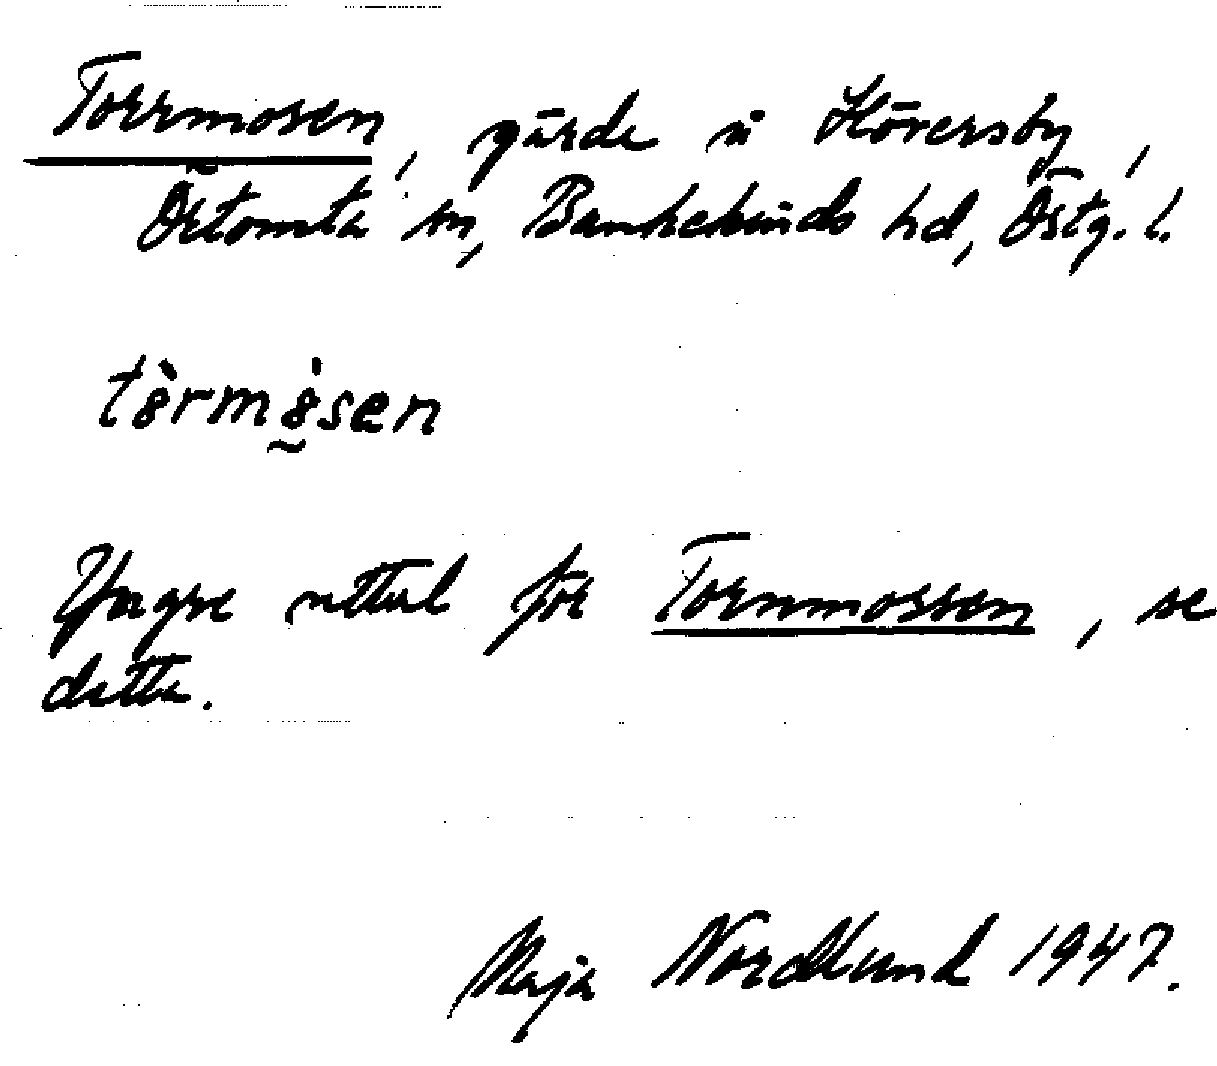 Torrmosen, gärde å Höversby,
Östomta sn, Bankekinds hd, Östg. l.
tòrmósen
Yngre uttal för Tornmossen, se
detta.
Maja Nordlund 1947.